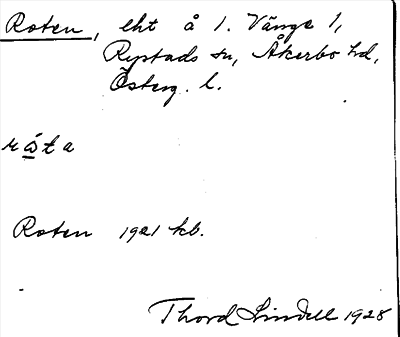 Roten, lht å 1. Vänge 1,
Rystads sn, Åkerbo hd,
Österg. l.
rώta
Roten 1921 kb.
Thord Lindell 1928